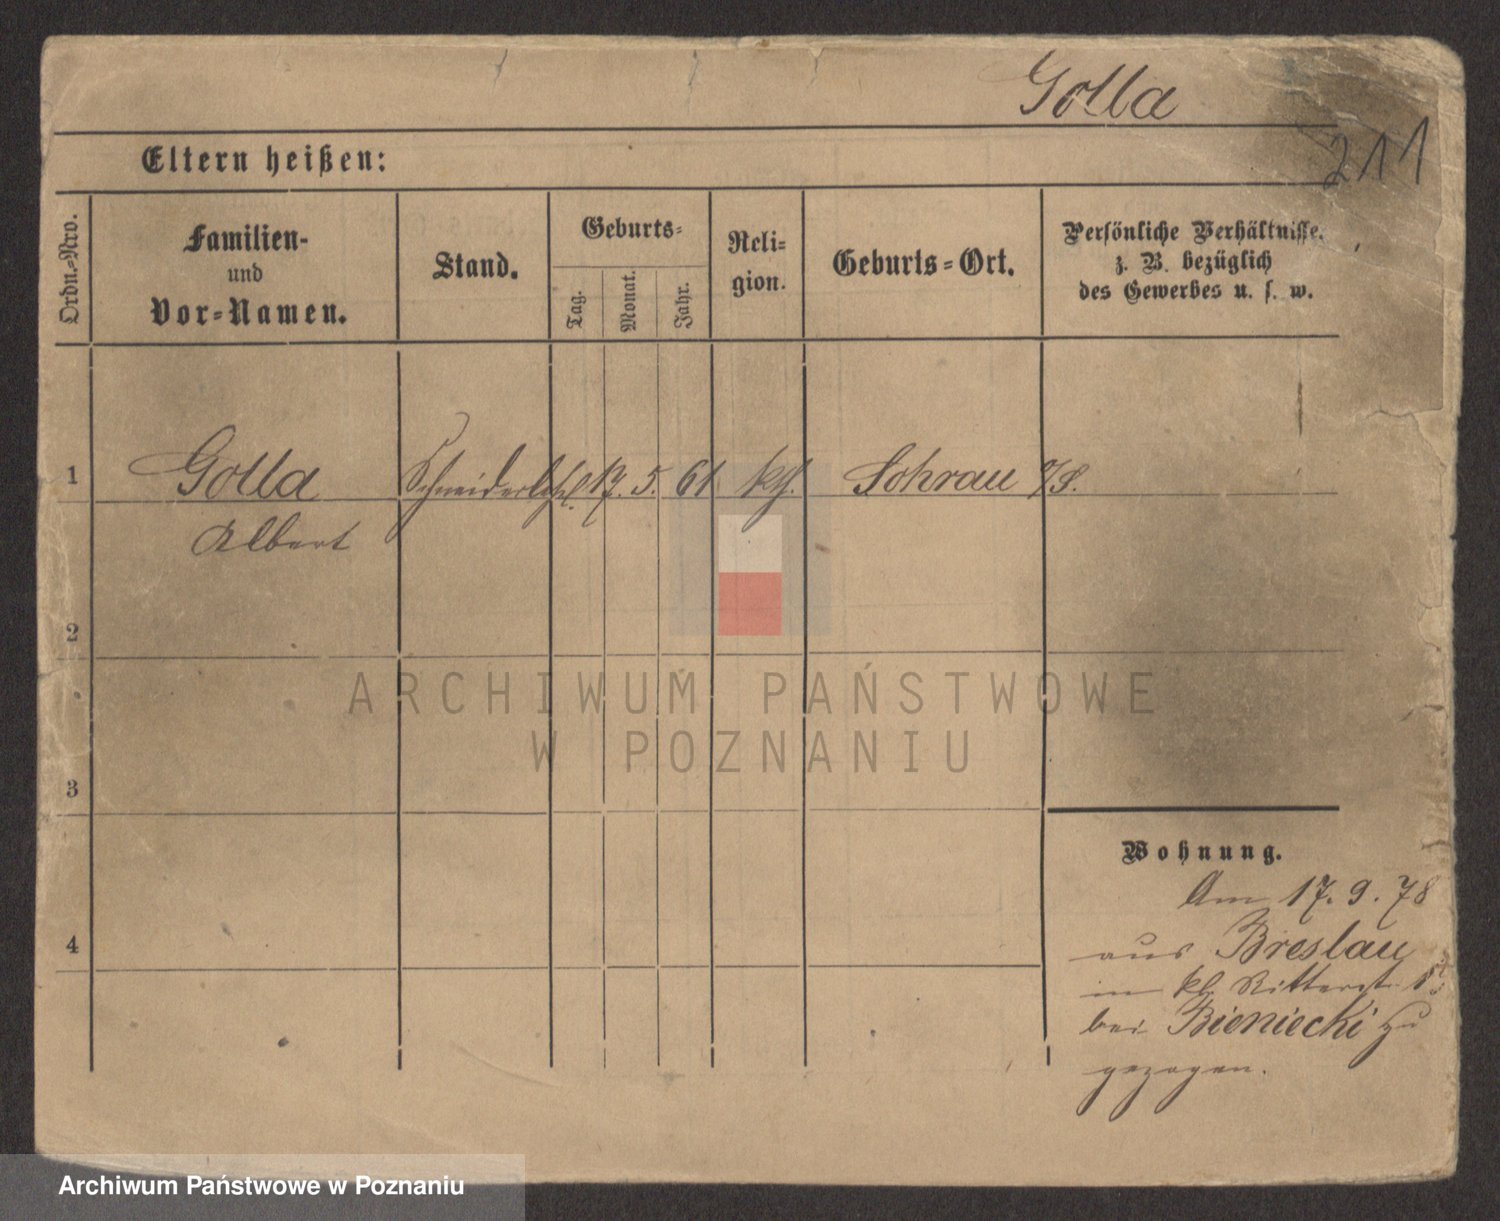 Golla
211
Eltern heißen:
Ordn.-Nro.
Familien-
und
Vor-Namen.
Stand.
Geburts-
Tag.
Monat.
Jahr.
Reli-
gion.
Geburts-Ort.
Persönliche Verhältnisse.
z. B. bezüglich
des Gewerbes u. s. w.
1
Golla Schneiderges. 17. 5. 61 kth. Sohrau o/S.
Albert
2
3
4
Wohnung.
Am 17. 9. 78
aus Breslau
in kl. Ritterst.
bei Bieniecki zu
gezogen.
ARCHIWUM PAŃSTWOWE
W POZNANIU
Archiwum Państwowe w Poznaniu